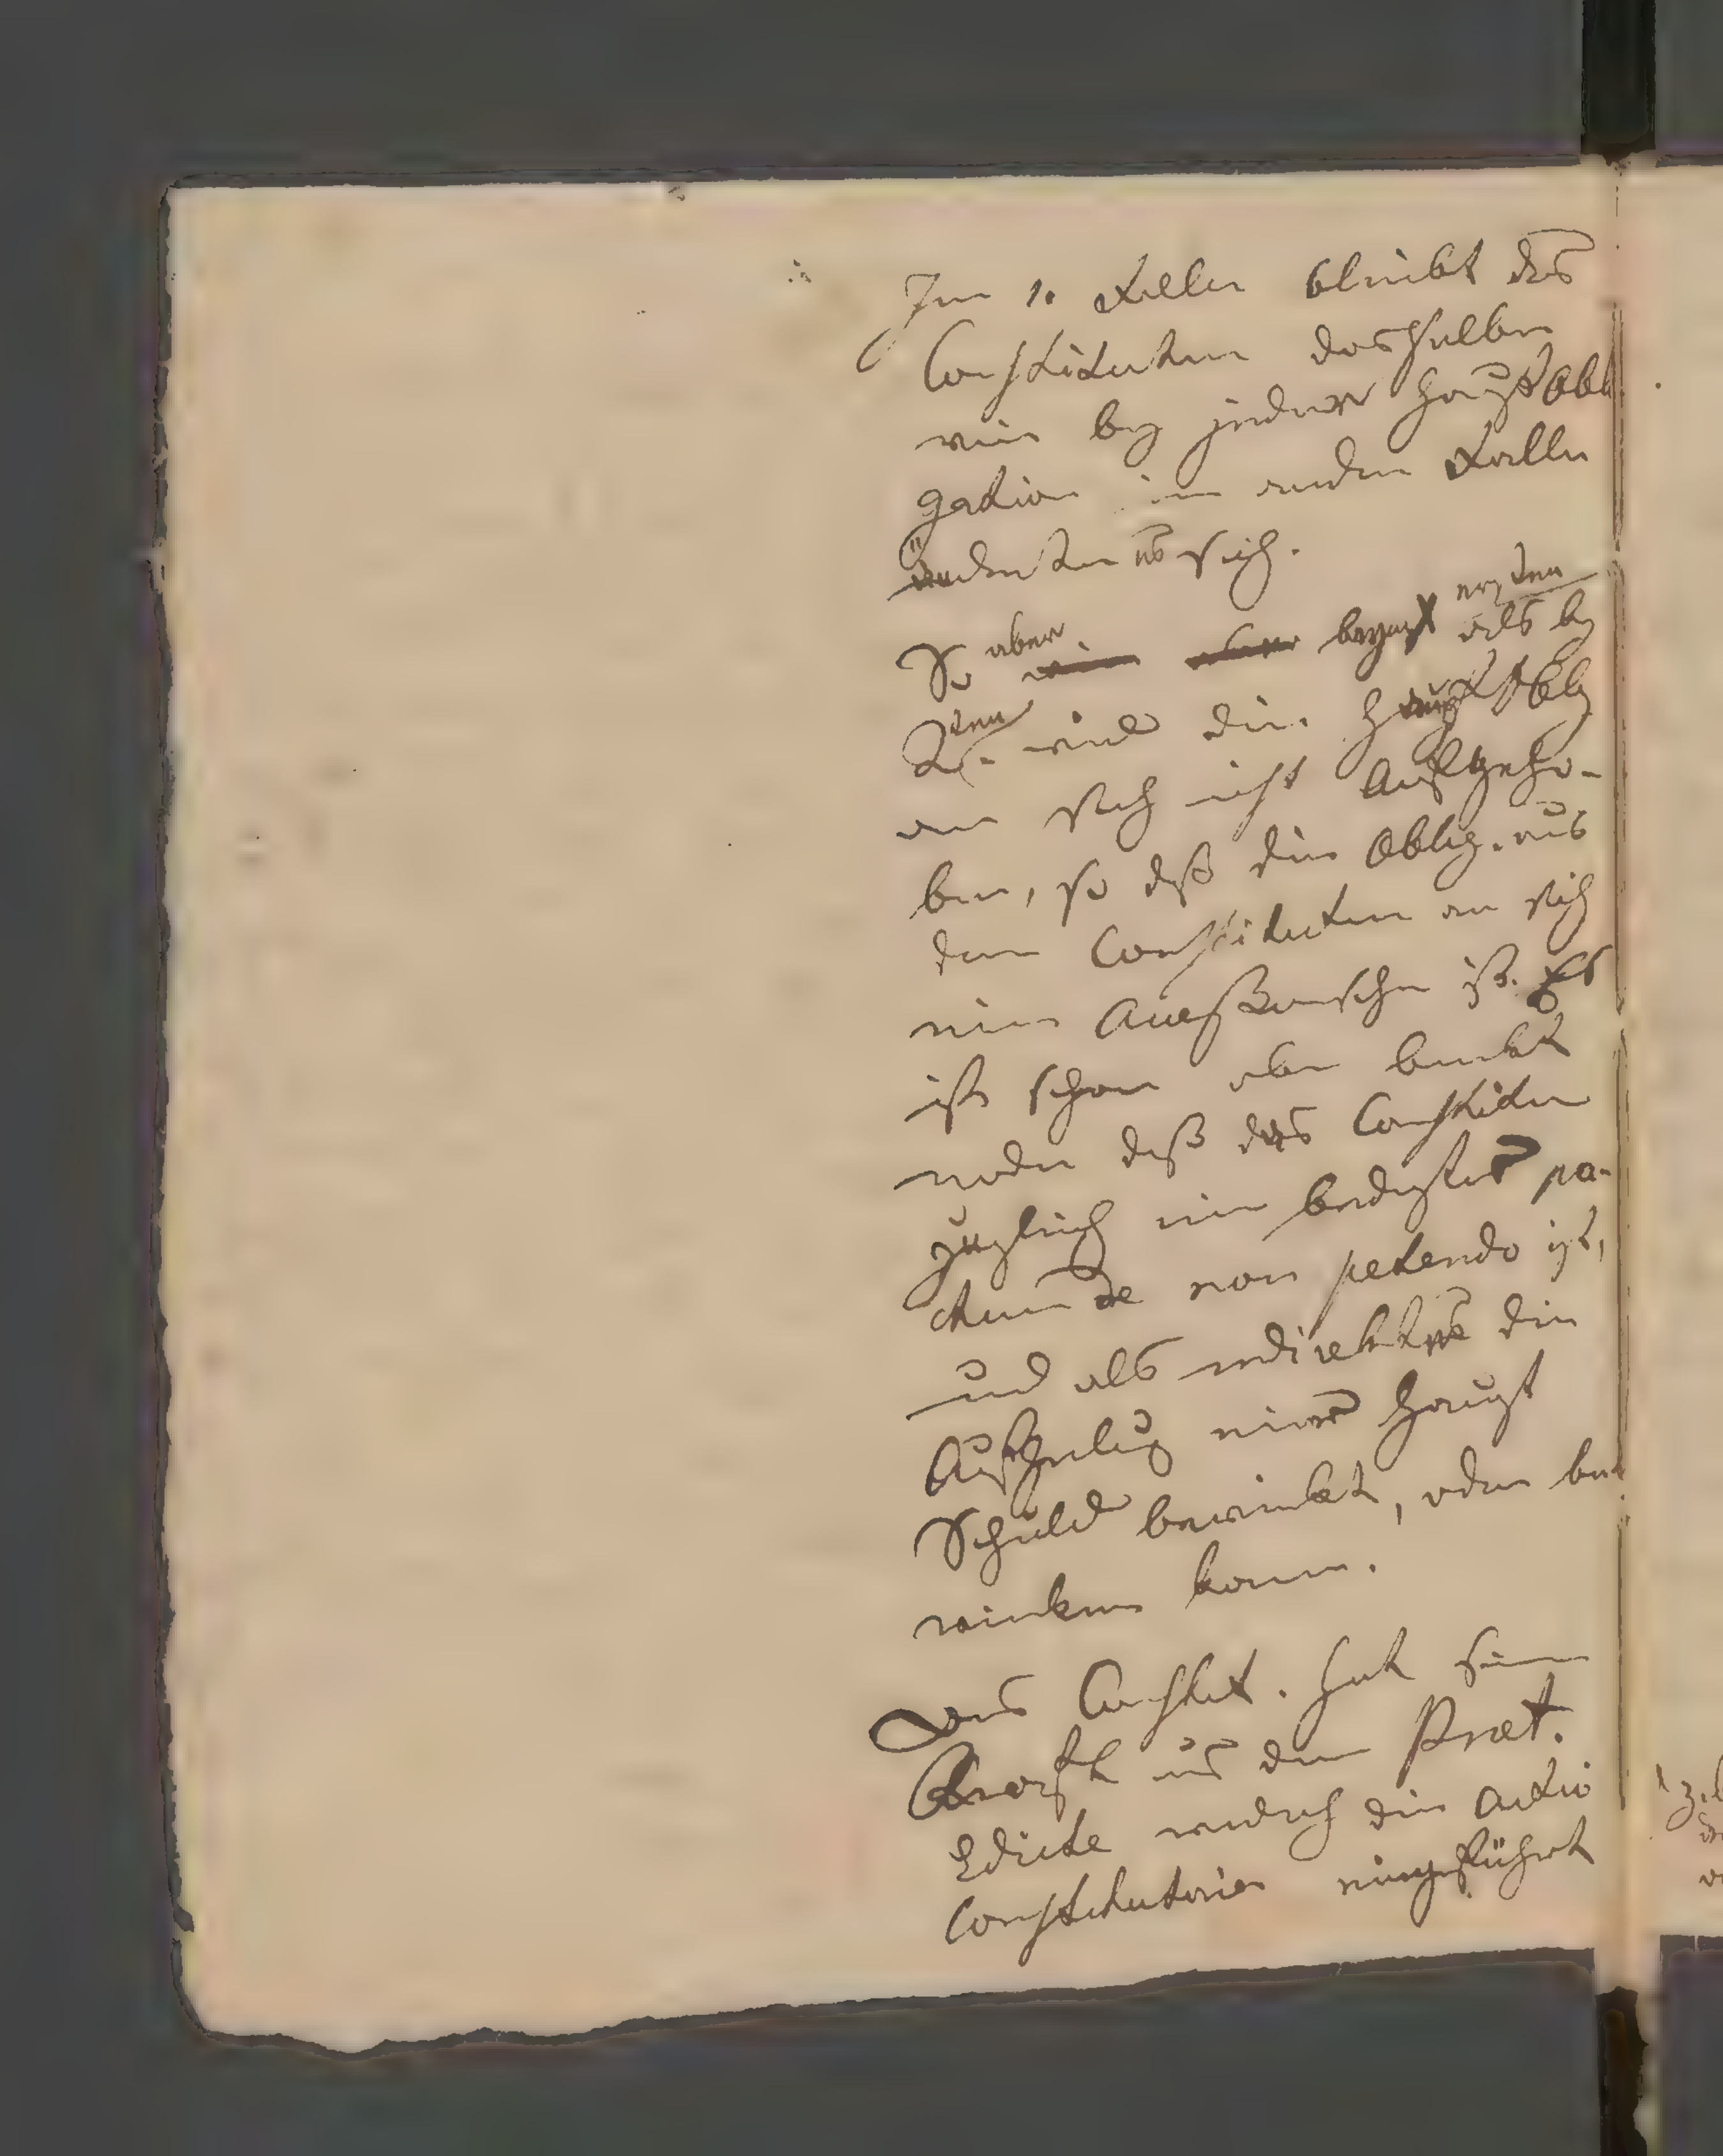 Im 1. Falle bleibt das
Constitutum dasselbe
wie bey jeder Haupt Obli
gation im andern Falle
ändert es sich.
So aber beym ersten als by
2ten wird die Haupt Oblg
an sich nicht aufgeho-
ben, so daß die Oblig. aus
dem Constitutum an sich
eine ist. Es
ist schon oben bemerkt
worden daß das Constitu
zugleich ein pa-
ctum de non petendo ist,
und als indirekte die
Aufhebung einer Haupt
Schuld bewirkt, oder be
wirken kann.
Das Constit. hat seine
Kraft aus dem Præt.
Edicte wodurch die Actio
Constitutoria eingeführt